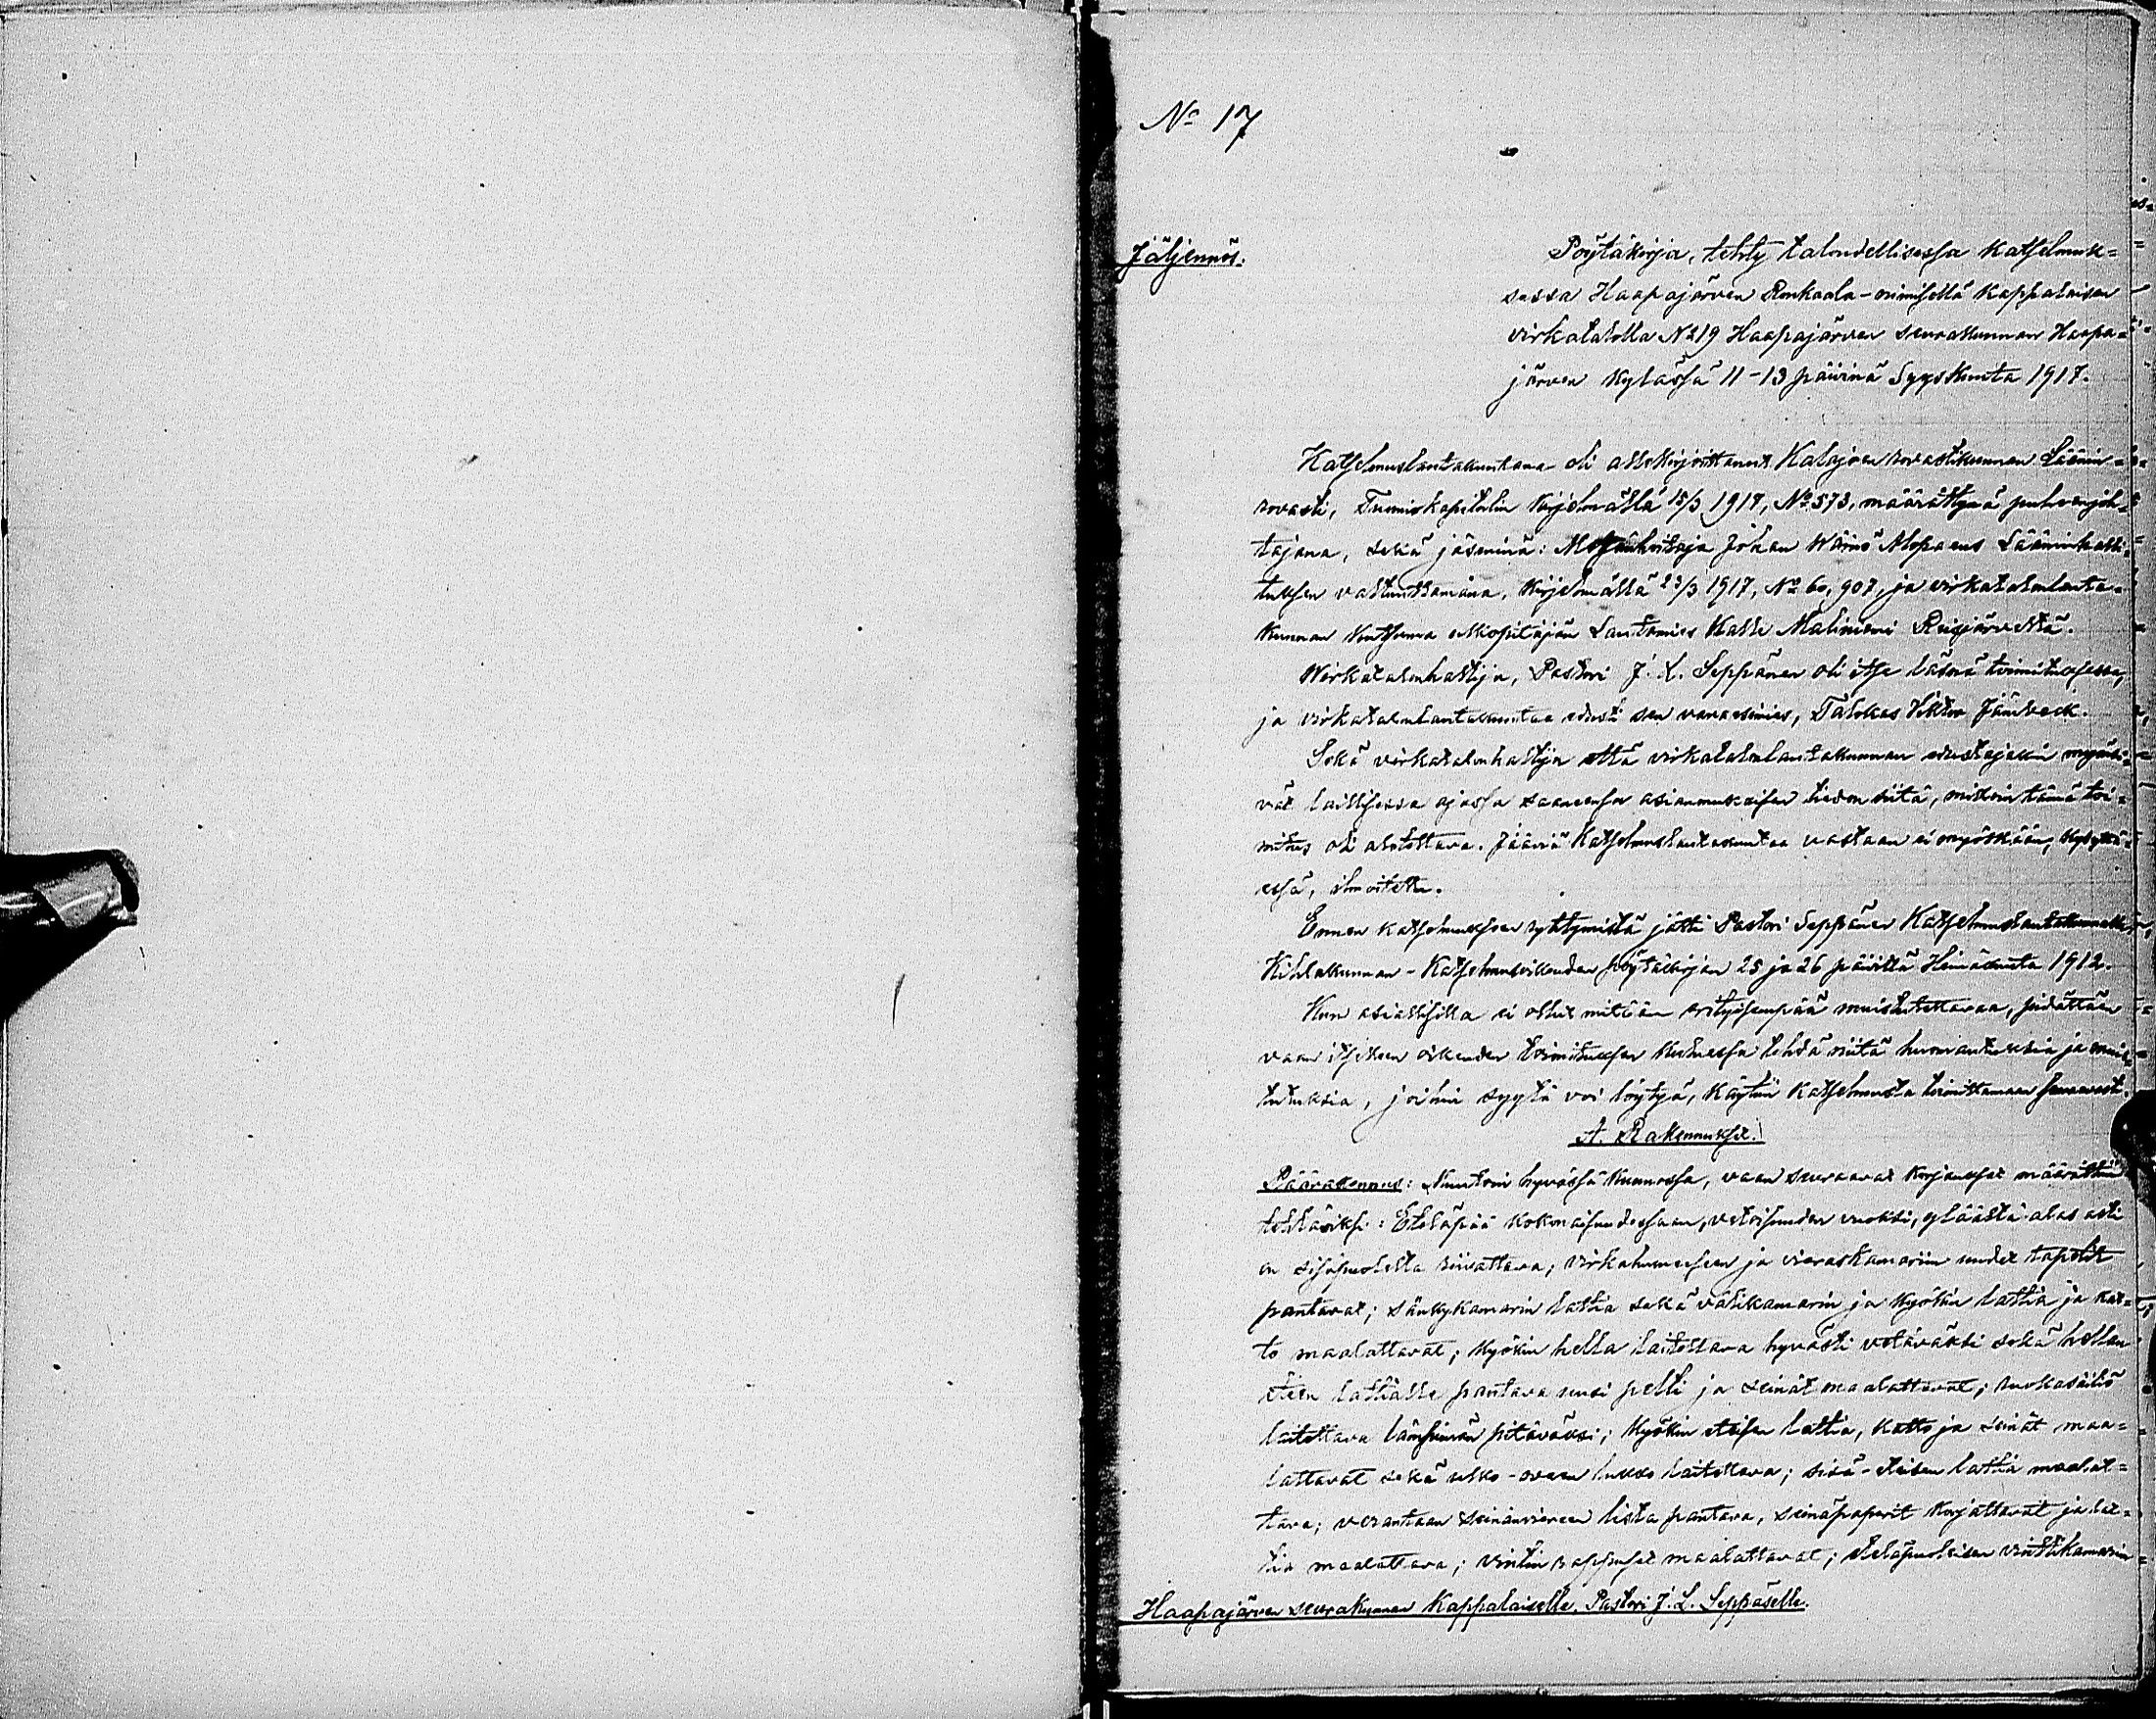 No 17
Jäljennös.
Pöytäkirja, tehty taloudellisessa katselmuk=
sessa Haapajärven Ronkaala-nimisellä kappalaisen
virkatalolla No 19 Haapajärven seurakunnan Haapa=
järven kylässä 11-13 päivinä Syyskuuta 1917.
Katselmuslautakuntana oli allekirjoittanut Kalajoen rovastikunnan Läänin=
rovasti, Tuomiokapitulin kirjelmällä 15/3 1917, No 573, määrättynä puheenjoh=
tajana, sekä jäseninä: Metsänhoitaja Johan Wäinö Alopaeus Lääninhalli=
tuksen valtuuttamana, kirjelmällä 23/3 1917, No 60,907, ja virkatalolauta=
kunnan kutsuma ulkopitäjän Lautamies Kalle Maliniemi Reisjärveltä.
Wirkatalonhaltija, Pastori J. L. Seppänen oli itse läsnä toimituksessa,
ja virkatalolautakuntaa edusti sen varaesimies, Talokas Viktor Jämbeck.
Sekä virkatalonhaltija että virkatalolautakunnan edustajakin myönsi=
vät laillisessa ajassa saaneensa asianmukaisen tiedon siitä, milloin tämä toi=
mitus oli alotettava. Jääviä Katselmuslautakuntaa vastaan ei myöskään, kysyttä=
essä, ilmoitettu.
Ennen katselmuksen ryhtymistä jätti Pastori Seppänen Katselmuslautakunnalle
Kihlakunnan-Katselmusoikeuden pöytäkirjan 25 ja 26 päiviltä Heinäkuuta 1912.
Kun asiallisilla ei ollut mitään erityisempää muistutettavaa, pidättäen
vaan itselleen oikeuden toimituksen kuluessa tehdä niitä huomautuksia ja muis=
tutuksia, joihin syytä voi löytyä, käytiin katselmusta toimittamaan seuraavasti.
A. Rakennukset.
Päärakennus: Muutoin hyvässä kunnossa, vaan seuraavat korjaukset määrättiin
tehtäviksi: Eteläpää kokonaisuudessaan, vetoisuuden vuoksi, ylhäältä alas asti
on sisäpuolelta riivattava; virkahuoneeseen ja vieraskamariin uudet tapetit
pantavat; sänkykamarin lattia sekä välikamarin ja kyökin lattia ja kat=
to maalattavat; kyökin hella laitettava hyvästi vetäväksi sekä hellan
eteen lattialle pantava uusi pelti ja seinät maalattavat; ruokasäiliö
laitettava lämpimän pitäväksi; kyökin eteisen lattia, katto ja seinät maa=
lattavat sekä ulko-oveen lukko laitettava; sisä-eteisen lattia maalat=
tava; verantaan seinänviereen lista pantava, seinäpaperit korjattavat ja lat=
tia maalattava; vintin rappuset maalattavat; eteläpuoleisen vinttikamarin
Haapajärven seurakunnan Kappalaiselle, Pastori J. L. Seppäselle.